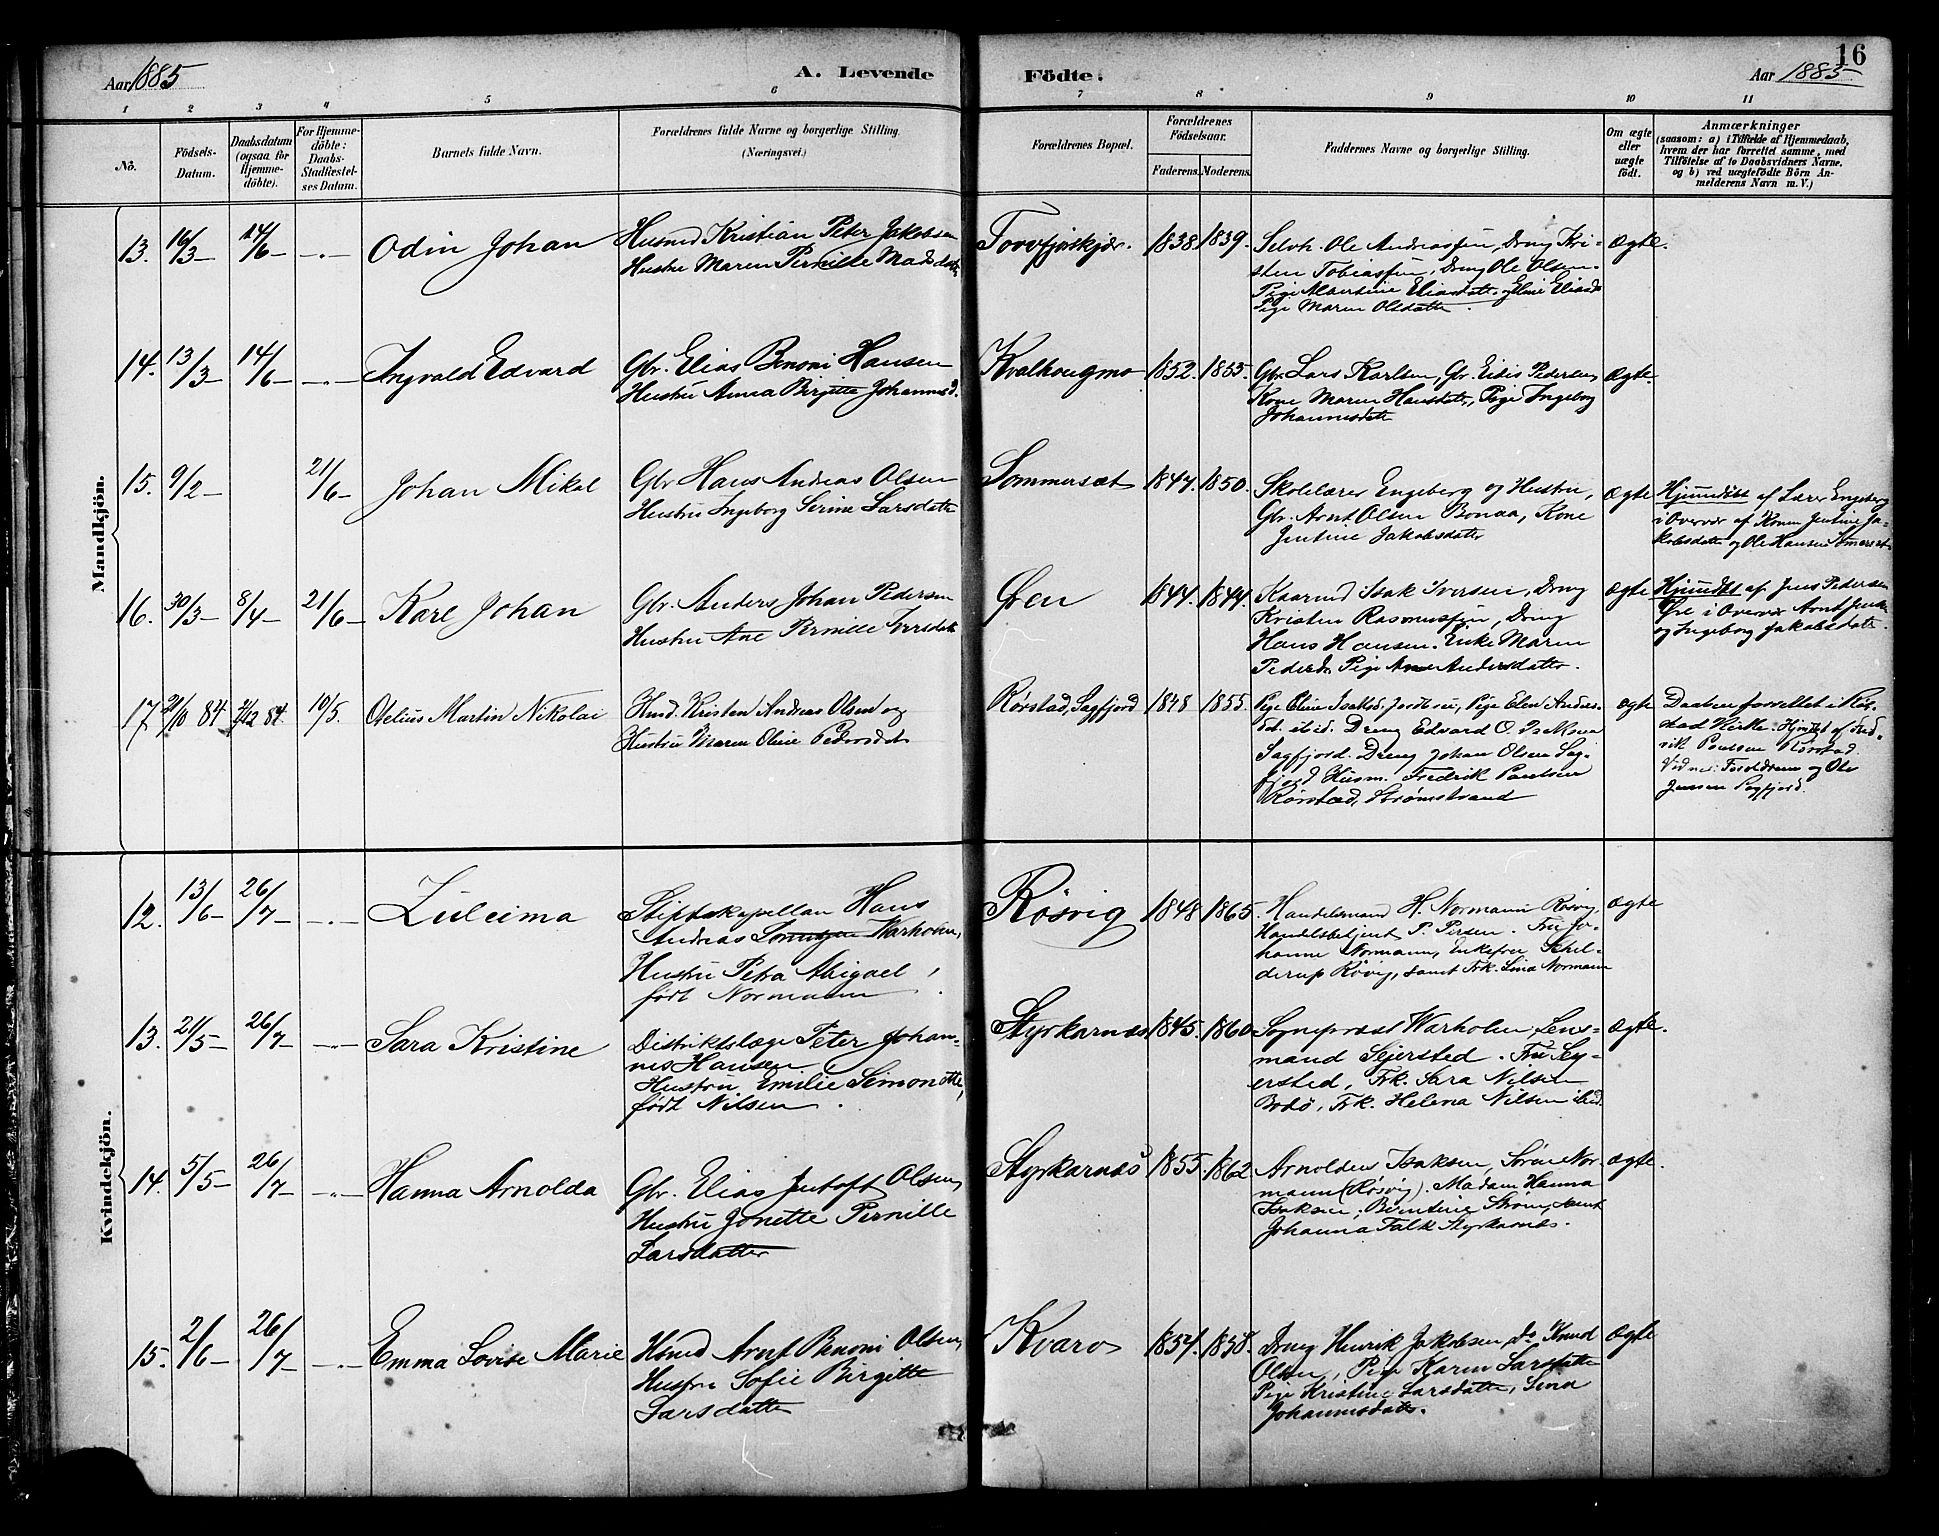 Aar 1885
A. Levende
Födte.
Aar 1885
16
1 2 3 4 5 6 7 8 9 10 11
No.
Födsels-
Datum.
Daabsdatum
(ogsaa for
Hjemme-
döbte).
For Hjemme-
döbte:
Daabs-
Stadfæstel-
ses Datum.
Barnets fulde Navn.
Forældrenes fulde Navne og borgerlige Stilling.
(Næringsvei.)
Forældrenes Bopæl.
Forældrenes
Födselsaar.
Faderens. Moderens.
Faddernes Navne og borgerlige Stilling.
Om ægte
eller
uægte
födt.
Anmærkninger
(saasom: a) i Tilfælde af Hjemmedaab,
hvem der har forrettet samme, med
Tilföielse af to Daabsvidners Navne,
og b) ved uægtefödte Börn An-
melderens Navn m. V.)
Mandkjön.
13. 16/3 14/6 Odin Johan
Husmd Kristian Peter Jakobsen
Hustru Maren Pernille Madsdatter
1838. 1839.
Selvh. Ole Andreassen, Dreng Kri-
sten Tobiassen, Dreng Ole Olsen.
Pige Albertine Eliasdatter, Eline Eliasd
Pige Maren Olsdatter.
Ægte.
14. 13/3 14/6 Ingvald Edvard
Gbr. Elias Benoni Hansen
Hustru Anna Birgitte Johannesd.
Kvalhougmo 1852. 1855.
Gbr. Lars Karlsen, Gbr. Eidis Pedersen
Kone Maren Hansdatter, Pige Ingeborg
Johannesdatter
Ægte.
15. 9/2 21/6 Johan Mikal
Gbr Hans Andreas Olsen
Hustru Ingeborg Serine Larsdatter
Sommerset 1847. 1850.
Skolelærer Engeberg og Hustru,
Gbr. Arnt Olsen Bonaa, Kone
Jentine Jakobsdatter
Ægte
Hjemdøbt af Lærer Engeberg
i Overvær af Konen Jentine Ja-
kobsdatter og Ole Hansen Somerset
16. 30/3 8/4 21/6 Karl Johan
Gbr. Anders Johan Pedersen
Hustru Ane Pernille Iversdatter
Øren 1844. 1844.
Kaarmd Isak Iversen, Dreng
Kristen Rasmussen, Dreng
Hans Hansen. Enke Maren
Pedersd. Pige Ane Andersdatter.
Ægte
Hjemdbt af Jens Pedersen
Øre i Overvær Arnt Jensen
og Ingeborg Jakobsdatter.
17 84 84. 10/5. Otelius Martin Nikolai
Husmd. Kristen Andreas Olsen og
Hustru Maren Oline Pedersdat
Rørstad, Sagfjord 1848 1855.
Pige Eline Isaksd, Pige Elen Andrea
ibid. Dreng Edvard O. Isaksen
Sagfjord. Dreng Johan Olsen Sag-
fjord Husm. Fredrik Paulsen
Rørstad, Strømstrand
ægte
Daaben forrettet i Rør-
stad Kirke. Hjmdbt af Fred-
rik Paulsen Rørstad.
Vidner: Forældrene og Ole
Jensen Sagfjord.
Kvindekjön.
12. 13/6 26/7 Zuleima
Stiftskapellan Hans
Andreas Warholm,
Hustru Petra Abigael,
født Normann
Røsvig 1848 1865.
Handelsmand H. Normann Røsvig,
Handelsbetjent P. Persen. Fru Jo-
hanne Normann, Enkefru Schil-
derup Røvig, samt Frk. Lina Normann
Ægte
13. 21/5 26/7 Sara Kristine
Distriktslæge Peter Johan-
nes Hansen
Hustru Emilie Simonette,
født Nilsen.
Styrkarnæs 1845. 1860.
Sogneprest Warholm, Lens-
mand Sejersted. Fru Sey-
ersted, Frk. Sara Nilsen
Bodø, Frk. Helena Nilsen ibid.
Ægte.
14. 5/5 26/7 Hanna Arnolda
Gbr. Elias Jentoft Olsen,
Hustru Jonette Pernille
Larsdatter
Styrkarnæs 1855. 1862.
Arnoldus Isaksen, Søren Nor-
mann (Røsvig). Madam Hanna
Isaksen, Berntine Strøm, samt
Johanna Falk Styrkarnæs.
Ægte.
15. 2/6 26/7 Emma Lovise Marie
Husmd Arnt Benoni Olsen,
Hustru Sofie Birgitte
Larsdatter
Kvarv 1854. 1858.
Dreng Henrik Jakobsen, Do Knud
Olsen, Pige Karen Larsdatter
Pige Kristine Larsdatter, Lina
Johannesdatter.
Ægte